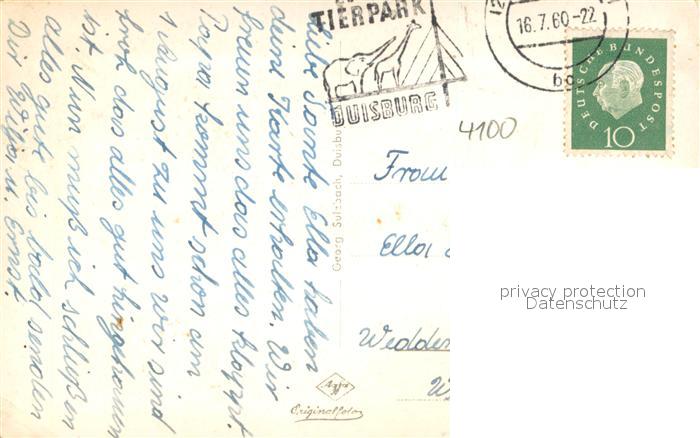 liebe Tante Ella haben
deine Karte erhalten. Wir
freun uns das alles klappt.
Papa kommt schon am
1 August zu uns wir sind
froh das alles gut hingehauen
ist. Nun muß ich schließen
alles gute bis bald senden
Dir u. Ernst.
TIERPARK
DUISBURG
16.7.60-22
bg
DEUTSCHE BUNDESPOST
10
4100
Georg Sulzbach, Duisbu
Frau
Ella
Wedden
W
Agfa
Originalfoto
privacy protection
Datenschutz